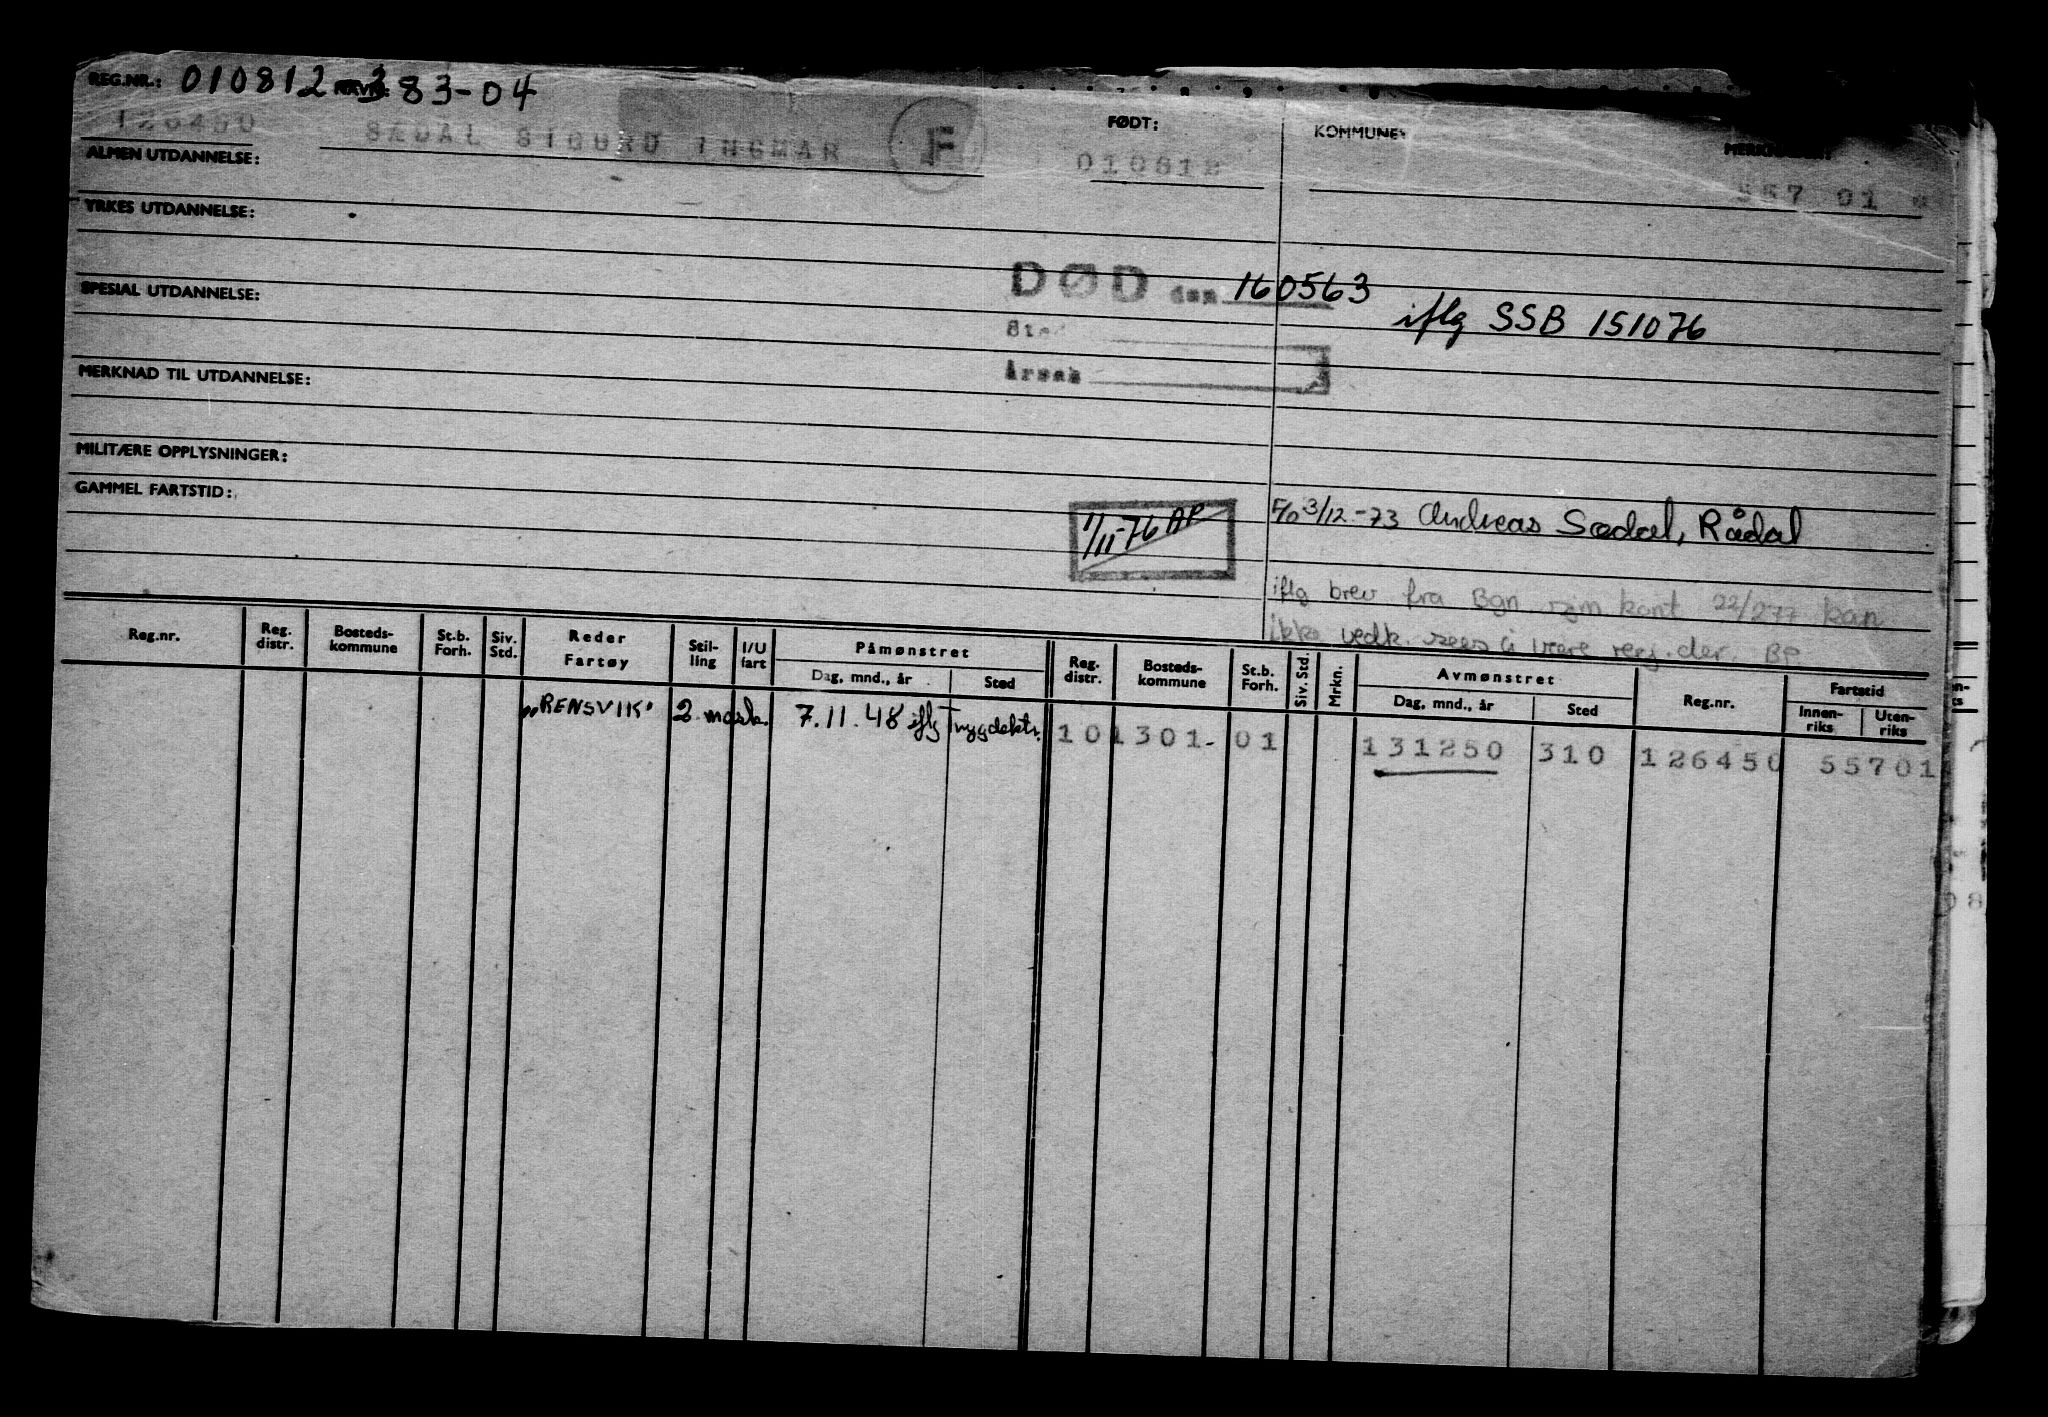 REG.NR.: 010812 383-04 FØDT: KOMMUNE:
126450 SÆDAL SIGURD INGMAR F 010812 557 01
ALMEN UTDANNELSE:
YRKES UTDANNELSE:
DØD den 160563 iflg SSB 151076
SPESIAL UTDANNELSE:
Sted
Årsak
MERKNAD TIL UTDANNELSE:
MILITÆRE OPPLYSNINGER:
GAMMEL FARTSTID:
1/11-76 AP 3/12-73 Andreas Sædal, Rådal
iflg brev fra Bgn sjm kont 22/277 kan
ikke vedk. sees å være reg. der. BP
Reg.nr. Reg. distr. Bosteds-kommune St.b. Forh. Siv. Std. Reder Fartøy Stil-ling I/U fart Påmønstret Dag, mnd., år Sted Reg. distr. Bosteds-kommune St.b. Forh. Siv. Std. Mrkn. Avmønstret Dag, mnd., år Sted Reg.nr. Fartstid Innen-riks Uten-riks
"RENSVIK" 2. mask. 7.11.48 iflg Trygdektr. 101301- 01 131250 310 126450 55701